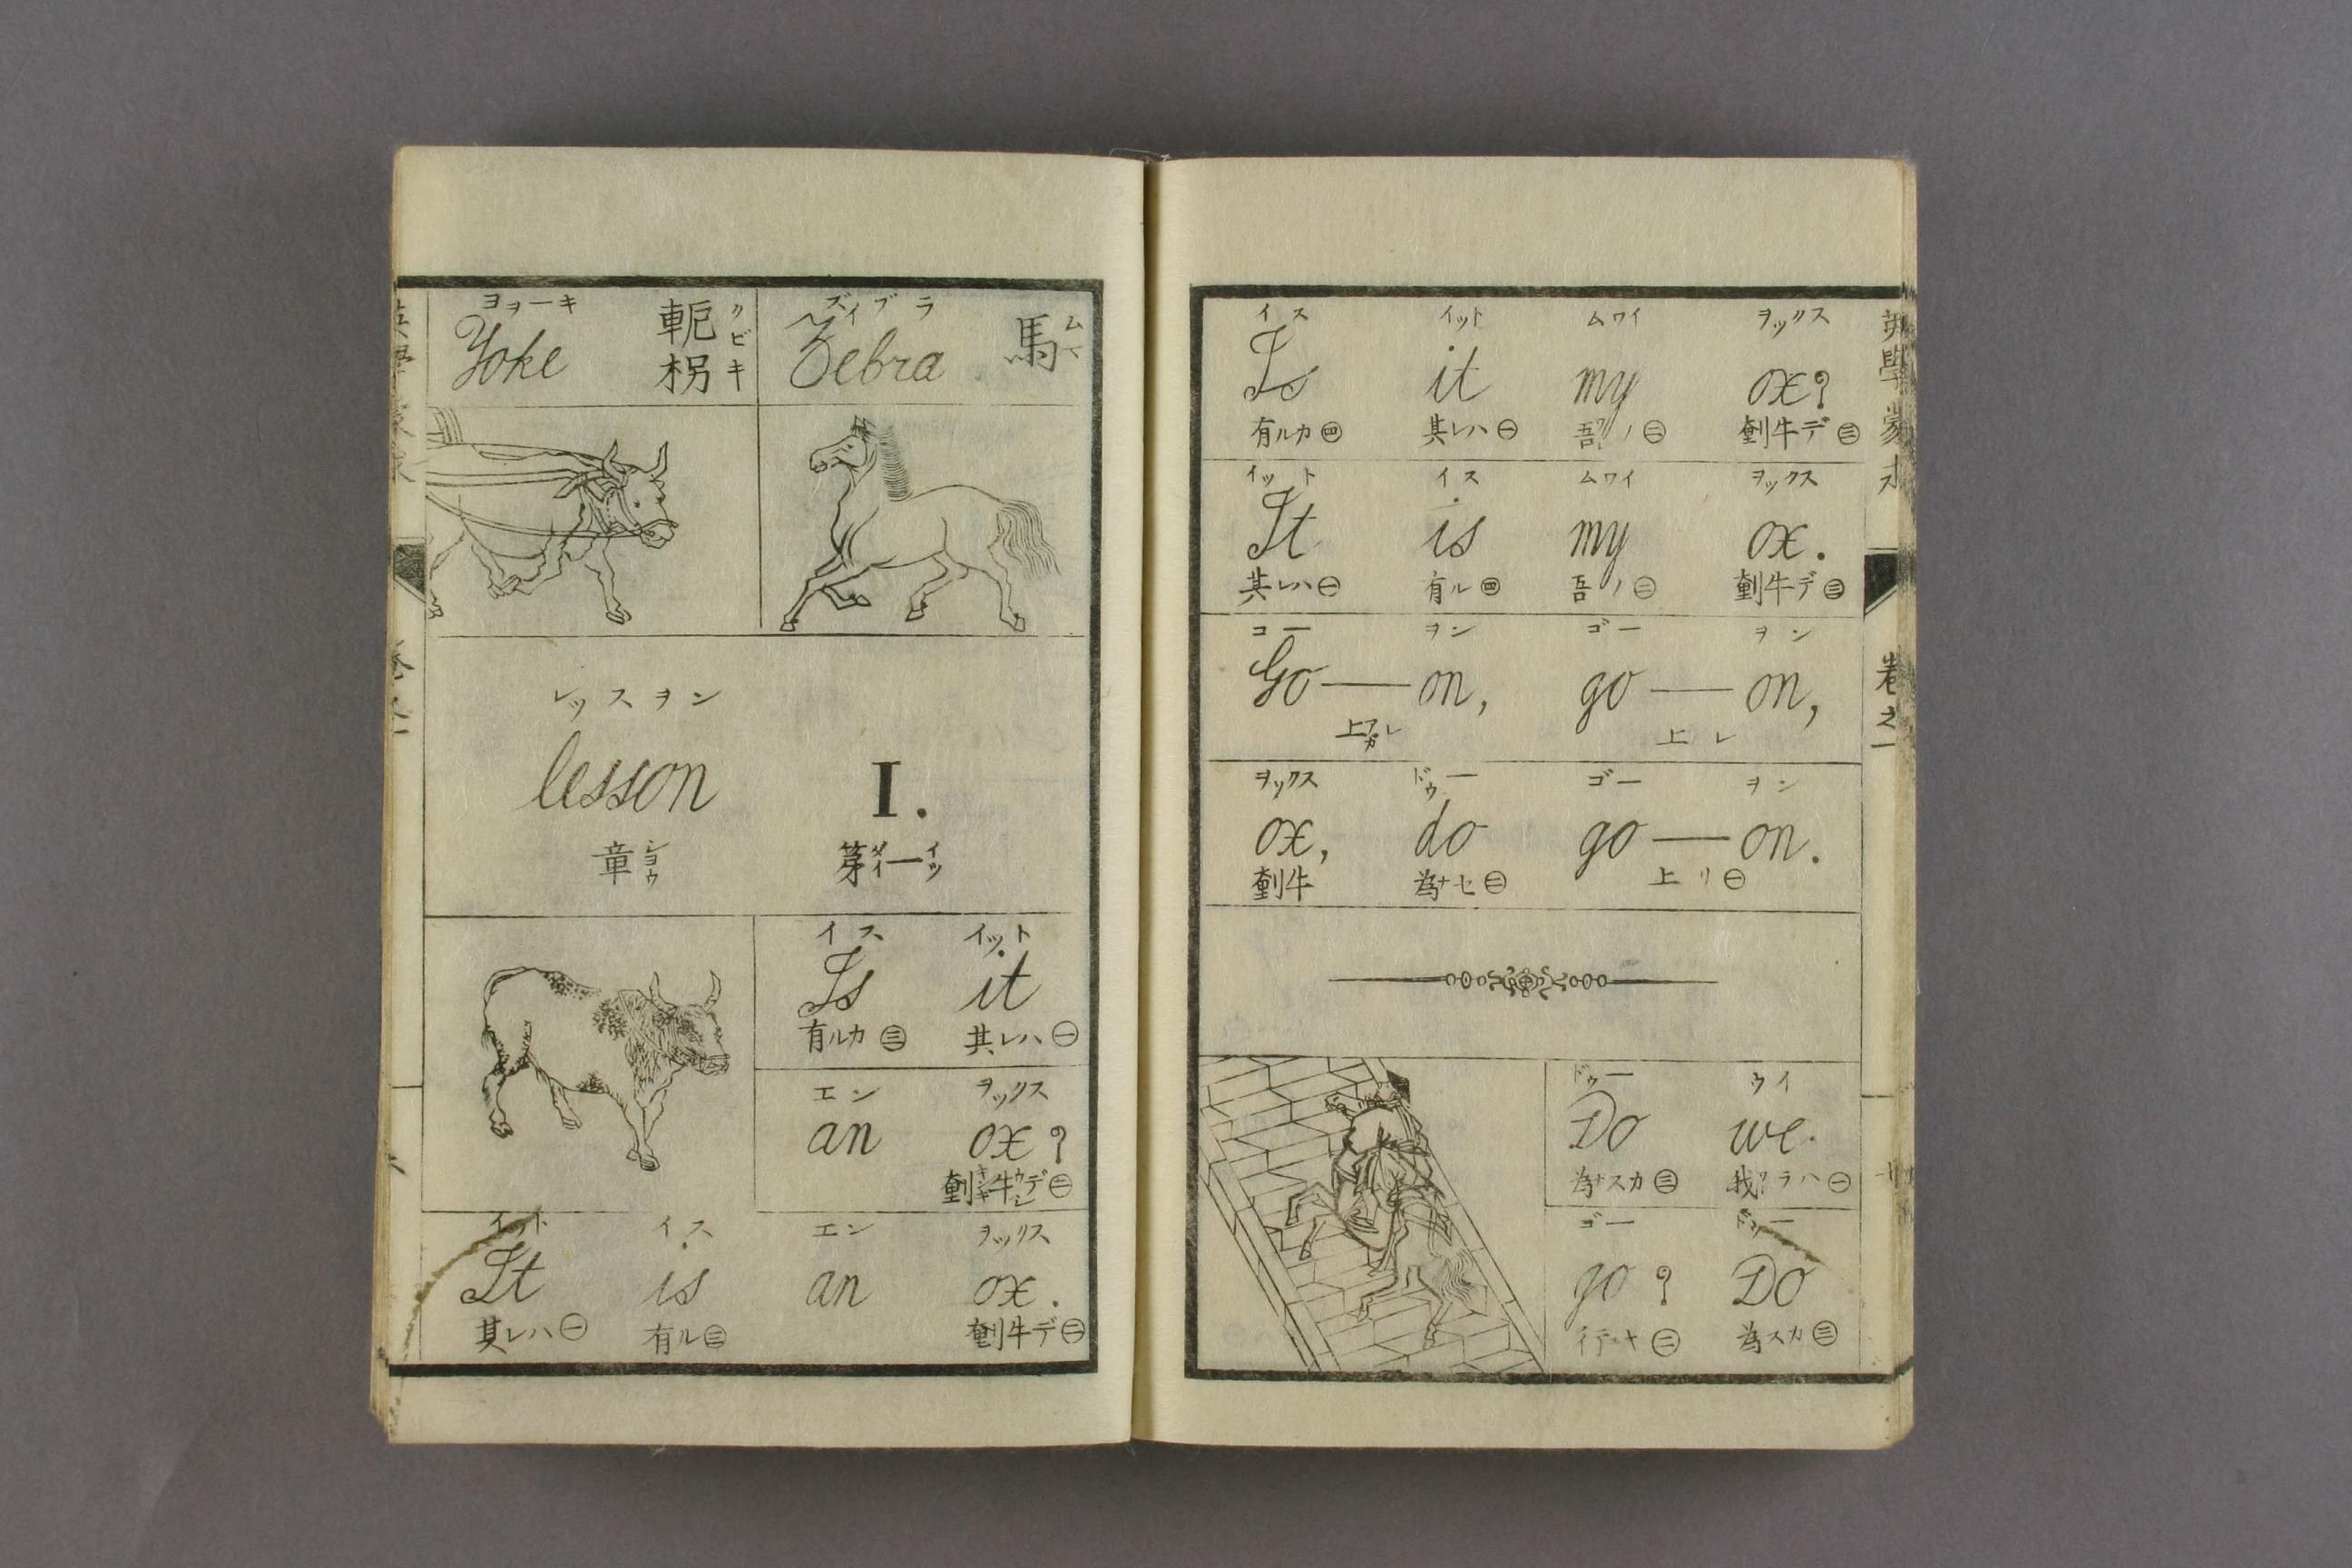 ヨヲーキ
Yoke
軛枴
クビキ
ズイブラ
Zebra
馬
ムマ
レッスヲン
lesson I.
章ショウ 第ダイ一イツ
イス イット
Is it
有ルカ㊂ 其レハ㊀
エン ヲックス
an ox?
㊁
イット イス エン ヲックス
It is an ox.
其レハ㊀ 有ル㊂ 牛デ㊁
イス イット ムワイ ヲックス
Is it my ox?
有ルカ㊃ 其レハ㊀ 吾ノ㊁ 牛デ㊂
イット イス ムワイ ヲックス
It is my ox.
其レハ㊀ 有ル㊃ 吾ノ㊁ 牛デ㊂
コー ヲン ゴー ヲン
Go — on, go — on,
上レ 上レ
ヲックス ドゥー ゴー ヲン
ox, do go — on.
牛 為ナセ㊁ 上リ㊀
ドゥー ウイ
Do we
為ナスカ㊂ 我ワラハ㊀
ゴー ドゥー
go? Do
㊁ 為スカ㊂
英學蒙求
巻之一